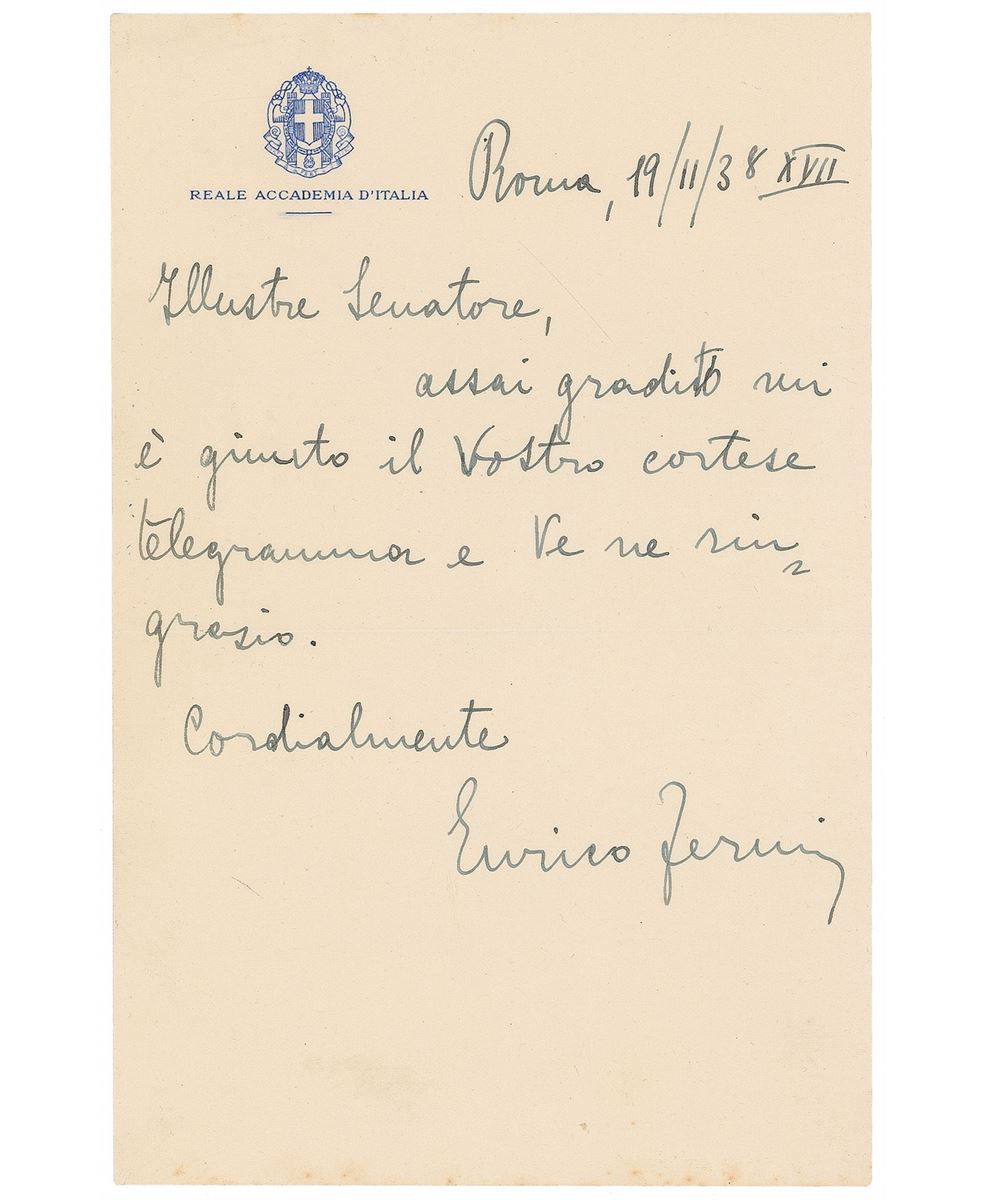 REALE ACCADEMIA D'ITALIA
Roma, 19/11/38 XVII
Illustre Senatore,
assai gradito mi
è giunto il Vostro cortese
telegramma e Ve ne rin=
grazio.
Cordialmente
Enrico Fermi